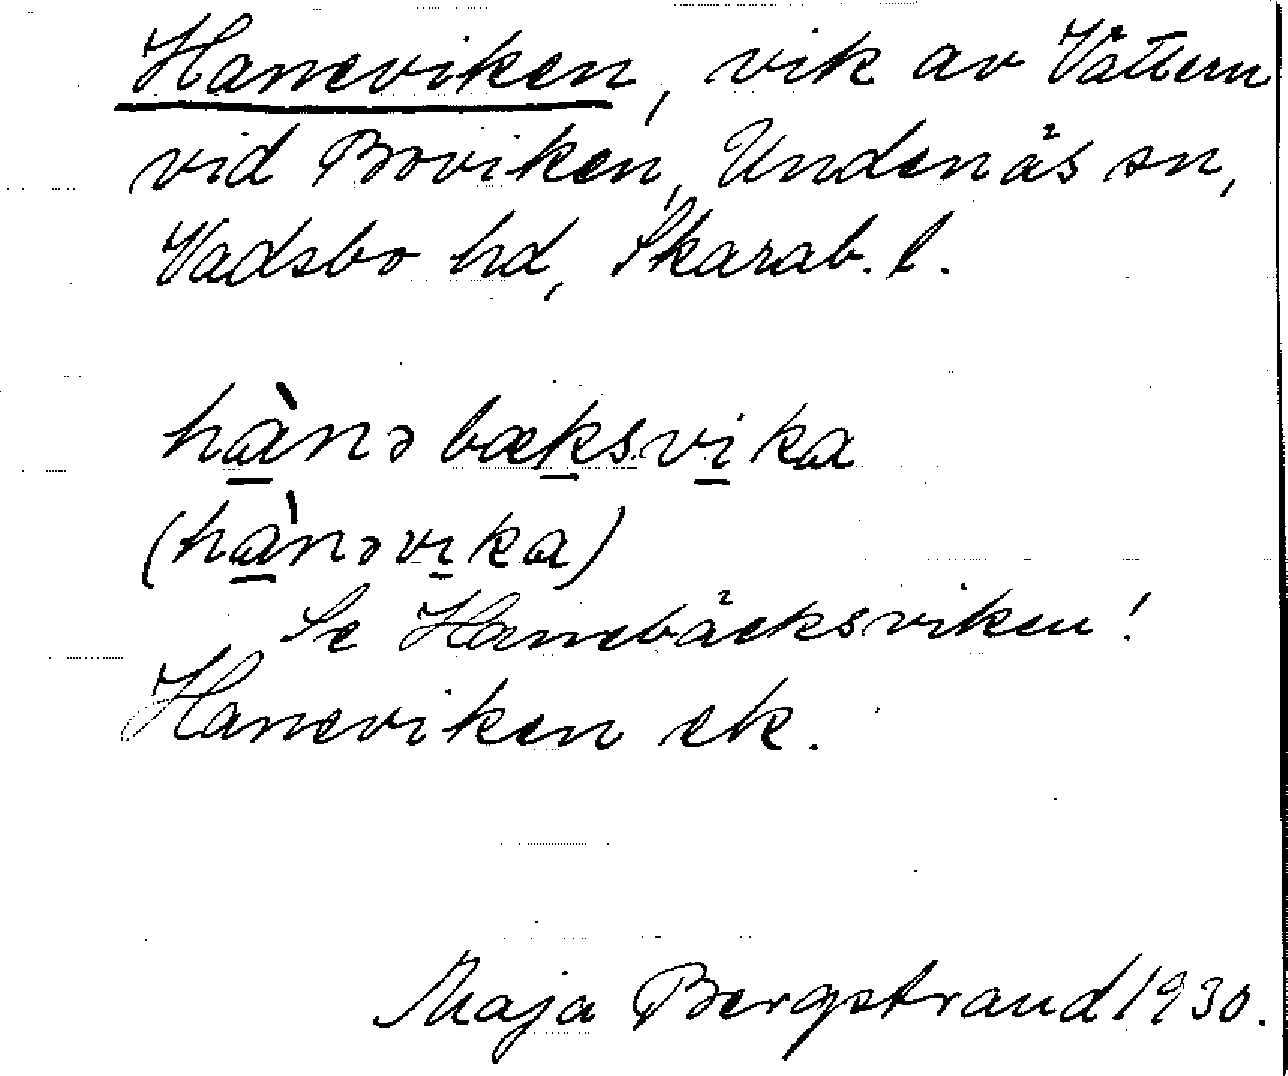 Haneviken, vik av Vättern
vid Boviken, Undenäs sn,
Vadsbo hd, Skarab. l.
hànəbæksvika
(hànəvika)
Se Hanebäcksviken!
Haneviken ek.
Maja Bergstrand 1930.